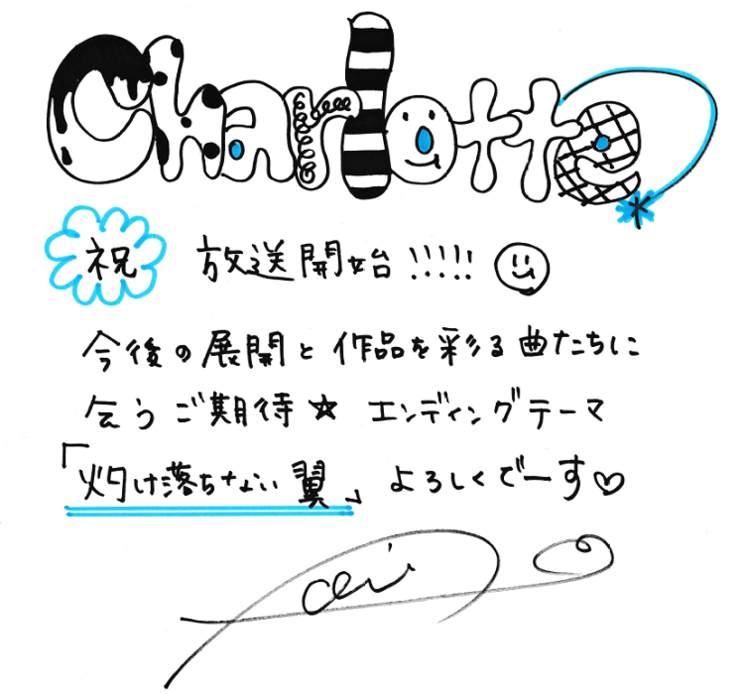 Charlotte
祝 放送開始!!!!!
今後の展開と作品を彩る曲たちに
乞うご期待☆ エンディングテーマ
「灼け落ちない翼」よろしくでーす♡